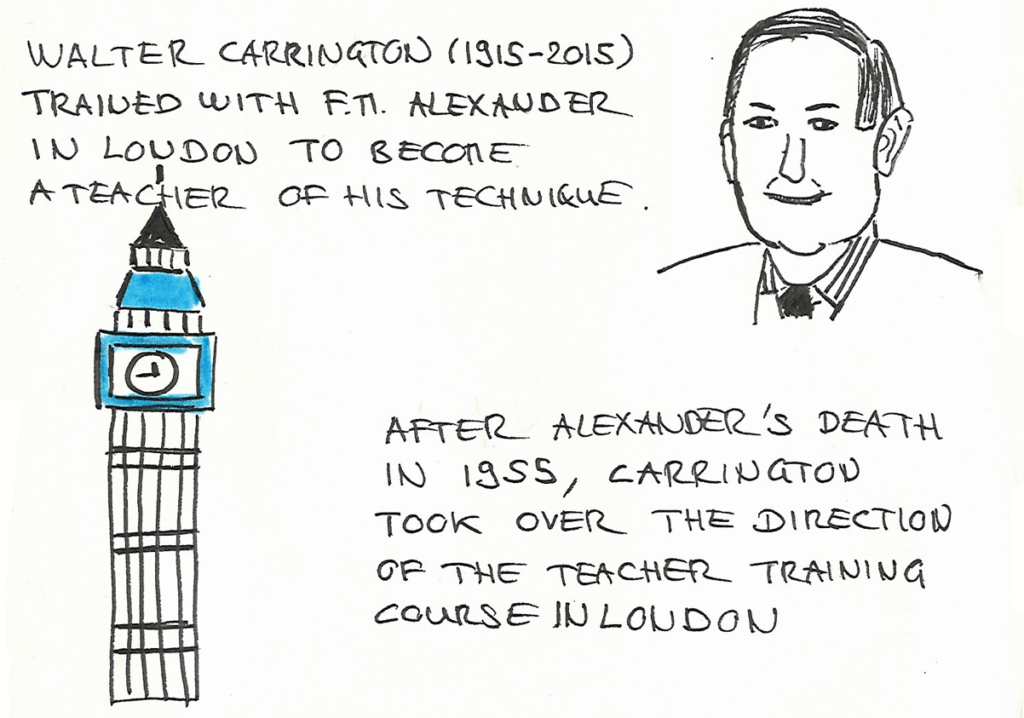 WALTER CARRINGTON (1915-2015)
TRAINED WITH F.M. ALEXANDER
IN LONDON TO BECOME
A TEACHER OF HIS TECHNIQUE.
AFTER ALEXANDER'S DEATH
IN 1955, CARRINGTON
TOOK OVER THE DIRECTION
OF THE TEACHER TRAINING
COURSE IN LONDON